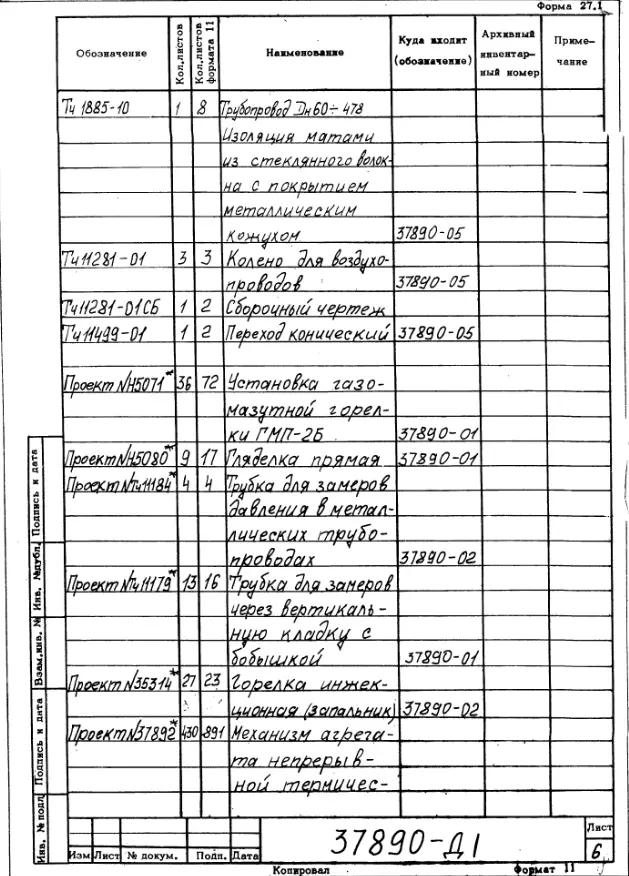 Форма 27.1
Обозначение Кол.листов Кол.листов формата 11 Наименование Куда входит (обозначение) Архивный инвентарный номер Примечание
Тч 1885-10 1 8 Трубопровод Dн60÷478
Изоляция матами
из стеклянного волок-
на с покрытием
металлическим
кожухом 37890-05
Тч11281-01 3 3 Колено для воздухо-
проводов 37890-05
Тч11281-01СБ 1 2 Сборочный чертеж
Тч11499-01 1 2 Переход конический 37890-05
Проект №Н5071* 36 72 Установка газо-
мазутной горел-
ки ГМП-2Б 37890-01
Проект №Н5080* 9 17 Гляделка прямая 37890-01
Проект №Тч11184* 4 4 Трубка для замеров
давления в метал-
лических трубо-
проводах 37890-02
Проект №Тч11179* 13 16 Трубка для замеров
через вертикаль-
ную кладку с
бобышкой 37890-01
Проект №35314* 27 23 Горелка инжек-
ционная (запальник) 37890-02
Проект №37892* 430 891 Механизм агрега-
та непрерыв-
ной термичес-
Подпись и дата
Инв. №дубл.
Взам.инв. №
Подпись и дата
Инв. № подл
Изм Лист № докум. Подп. Дата
37890-Д1
Лист
6
Копировал Формат 11